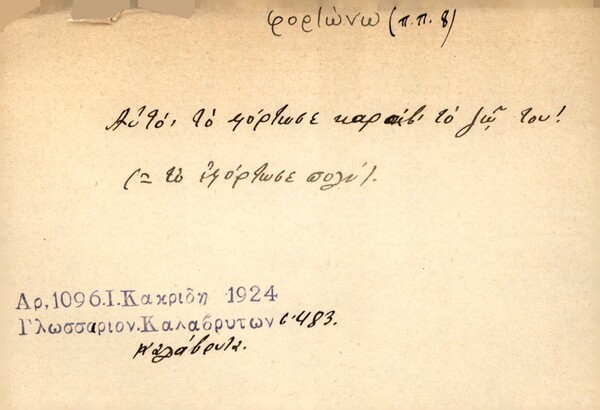 φορτώνω (π.π. 8)
Αὐτό, τὸ φόρτωσε καράβι τὸ ζῷ του!
(= τὸ ἐφόρτωσε πολύ).
Αρ.1096.Ι.Κακριδη 1924
Γλωσσαριον.Καλαβρυτων σ. 483.
Καλάβρυτα.